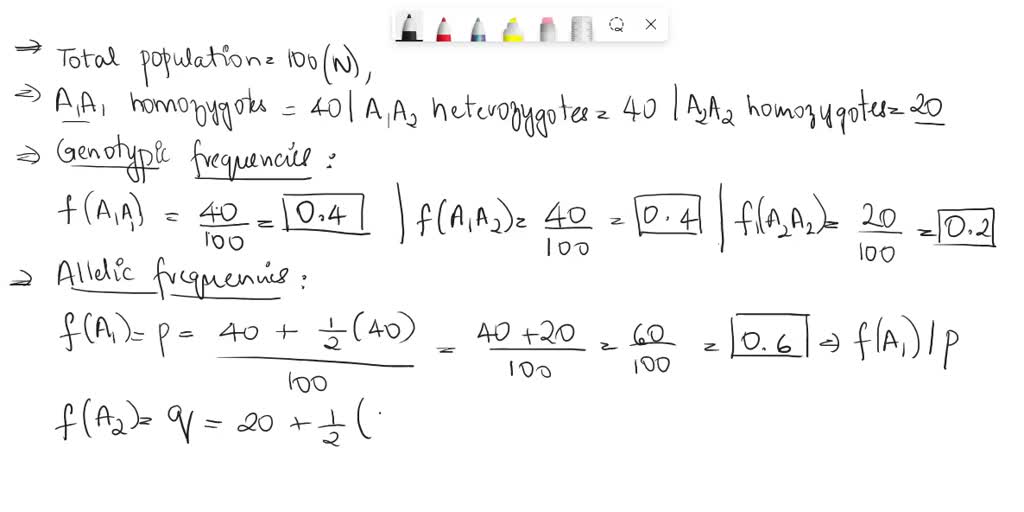 ⇒ Total population = 100 (N),
⇒ A₁A₁ homozygotes = 40 | A₁A₂ heterozygotes = 40 | A₂A₂ homozygotes = 20
⇒ Genotypic frequencies :
f(A₁A₁) = 40/100 = 0.4 | f(A₁A₂) = 40/100 = 0.4 | f(A₂A₂) = 20/100 = 0.2
⇒ Allelic frequencies :
f(A₁) = p = (40 + 1/2 (40))/100 = (40 + 20)/100 = 60/100 = 0.6 ⇒ f(A₁) | p
f(A₂) = q = 20 + 1/2 (